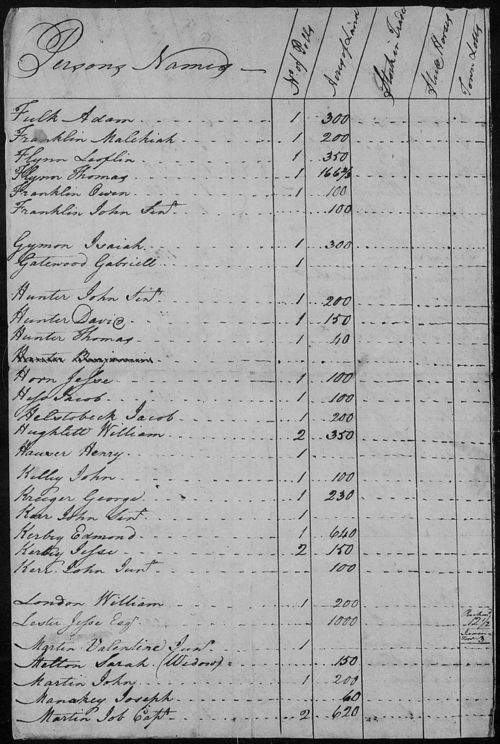 Persons Names No. of Polls Acres of Land Stock in Trade Stud Horses Town Lotts
Fulk Adam 1 300
Franklin Malchiah 1 200
Flynn Loflin 1 350
Flynn Thomas 1 166⅔
Franklin Owen 1 100
Franklin John Senr. 100
Gymon Isaiah 1 300
Gatewood Gabriell 1
Hunter John Senr. 1 200
Hunter David 1 150
Hunter Thomas 1 40
Horn Jesse 1 100
Hess Jacob 1 100
Helstobeck Jacob 1 200
Hughlett William 2 350
Hauser Henry 1
Kelley John 1 100
Kreeger George 1 230
Kerr John Senr. 1
Kerbey Edmond 1 640
Kerbey Jesse 2 150
Kerr John Junr. 100
London William 1 200
Lester Jesse Esqr. 1000 12½
Martin Valentine Junr. 1
Melton Sarah (Widow) 150
Martin John 1 200
Manakey Joseph 60
Martin Job Capt. 2 620